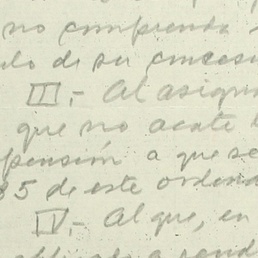 no comprenda
lo de su concesi
III.- Al asigna
que no acate l
pensión a que se
35 de este ordena
IV.- Al que, en